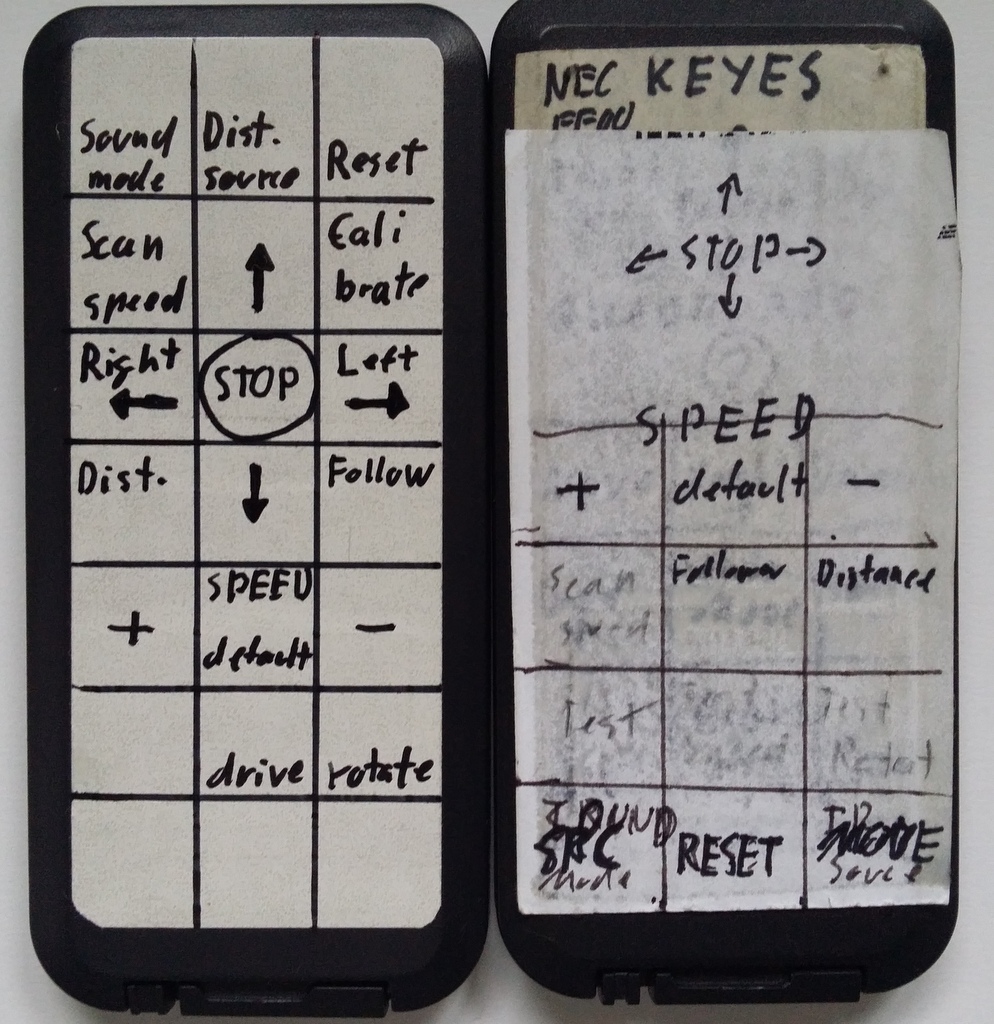 Sound mode
Dist. source
Reset
Scan speed
↑
Cali brate
Right ←
STOP
Left →
Dist.
↓
Follow
+
SPEED default
−
drive
rotate
NEC KEYES
↑
← STOP →
↓
SPEED
+
default
−
Scan speed
Follower
Distance
Test
Test Rotat
SOUND
Mode
RESET
Source